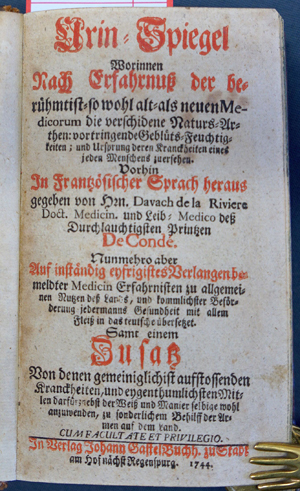 Urin-Spiegel
Worinnen
Nach Erfahrnuß der be-
rühmtist-so wohl alt-als neuen Me-
dicorum die verschidene Naturs-Ar-
then: vortringende Geblüts-Feuchtig-
keiten; und Ursprung deren Kranckheiten eines
jeden Menschens zuersehen.
Vorhin
In Frantzösischer Sprach heraus
gegeben von Hrn. Davach de la Riviere
Doct. Medicin. und Leib-Medico deß
Durchlauchtigsten Printzen
De Condé.
Nunmehro aber
Auf inständig eyfrigistes Verlangen be-
meldter Medicin Erfahrnisten zu allgemei-
nen Nutzen deß Lands, und kommlichster Beför-
derung jedermanns Gesundheit mit allem
Fleiß in das teutsche übersetzet.
Samt einem
Zusatz
Von denen gemeiniglichist aufstossenden
Kranckheiten, und eygenthumlichsten Mit-
len darfür, nebst der Weiß und Manier selbige wohl
anzuwenden, zu sonderlichem Behülff der Ar-
men auf dem Land.
CUM FACULTATE ET PRIVILEGIO.
In Verlag Johann Gastel Buchh. zu Stadt
am Hof nächst Regenspurg. 1744.